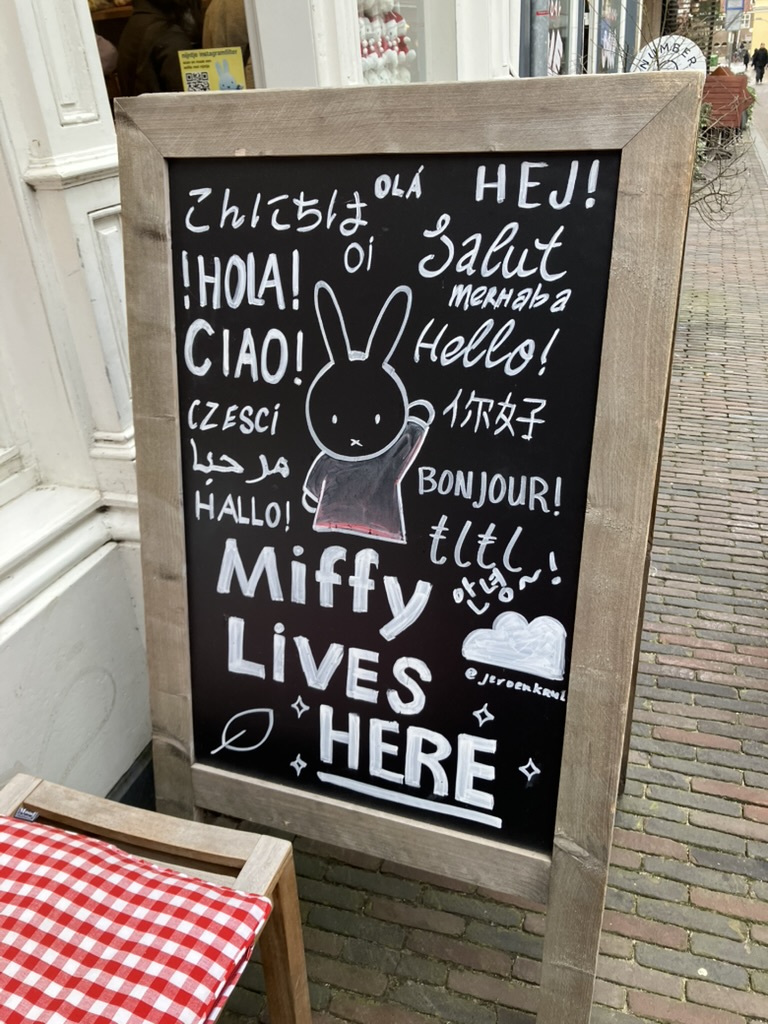 nijntje instagramfilter
NUMBER
こんにちは
OLÁ
HEJ!
Oi
Salut
!HOLA!
MERHABA
CIAO!
Hello!
CZESCI
你好
مرحبا
BONJOUR!
HALLO!
もしもし
안녕~!
Miffy
LIVES
HERE
@jeroenkrul